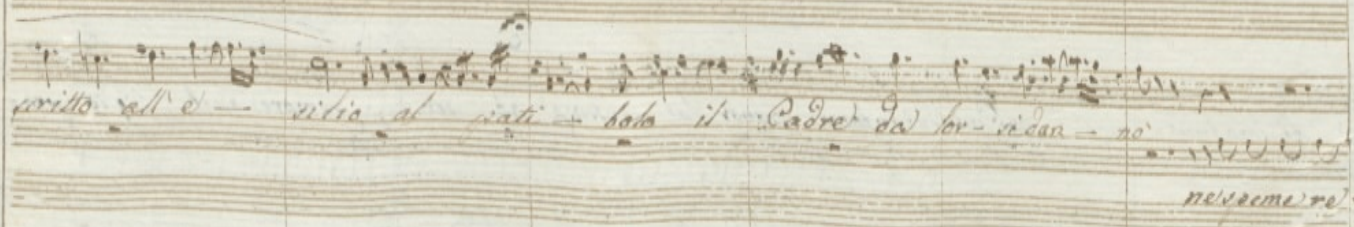 scritto all' e - silio al pati - bolo il Padre da lor - si dan - no
ne speme re